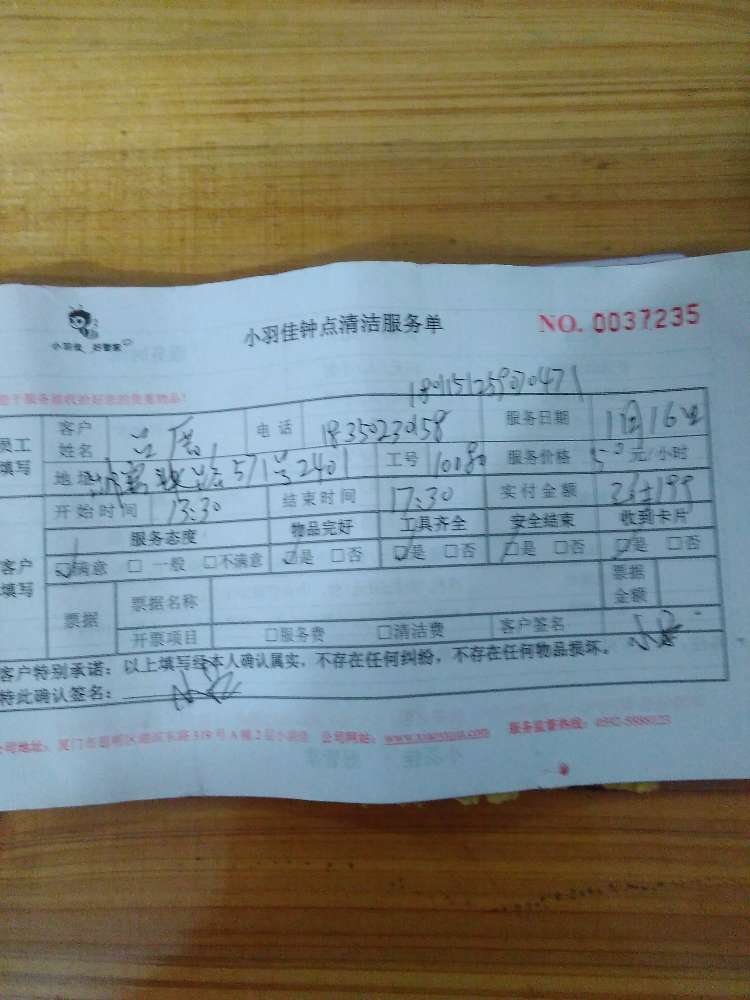 小羽佳 好管家
小羽佳钟点清洁服务单
NO. 0037235
1801151259070471
员工填写
客户姓名
电话 18350230158
服务日期 1月16日
地址 571号2401
工号 10180
服务价格 50元/小时
开始时间 13:30
结束时间 17:30
实付金额
服务态度 物品完好 工具齐全 安全结束 收到卡片
客户填写
☑满意 □一般 □不满意 ☑是 □否 ☑是 □否 ☑是 □否 ☑是 □否
票据 票据名称 票据金额
开票项目 □服务费 □清洁费 客户签名
客户特别承诺:以上填写经本人确认属实,不存在任何纠纷,不存在任何物品损坏。
特此确认签名:
公司地址:厦门市思明区湖滨东路319号A栋2层小羽佳 公司网站: 服务监督热线:0592-5988123